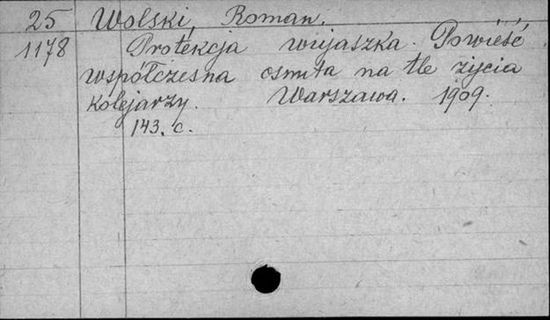 25 Wolski, Roman.
1178 Protekcja wujaszka. Powieść
współczesna osnuta na tle życia
kolejarzy. Warszawa. 1909.
143. c.